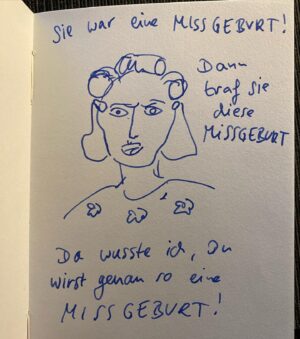 Sie war eine MISSGEBURT!
Dann
traf sie
diese
MISSGEBURT
Da wusste ich, Du
wirst genau so eine
MISSGEBURT!